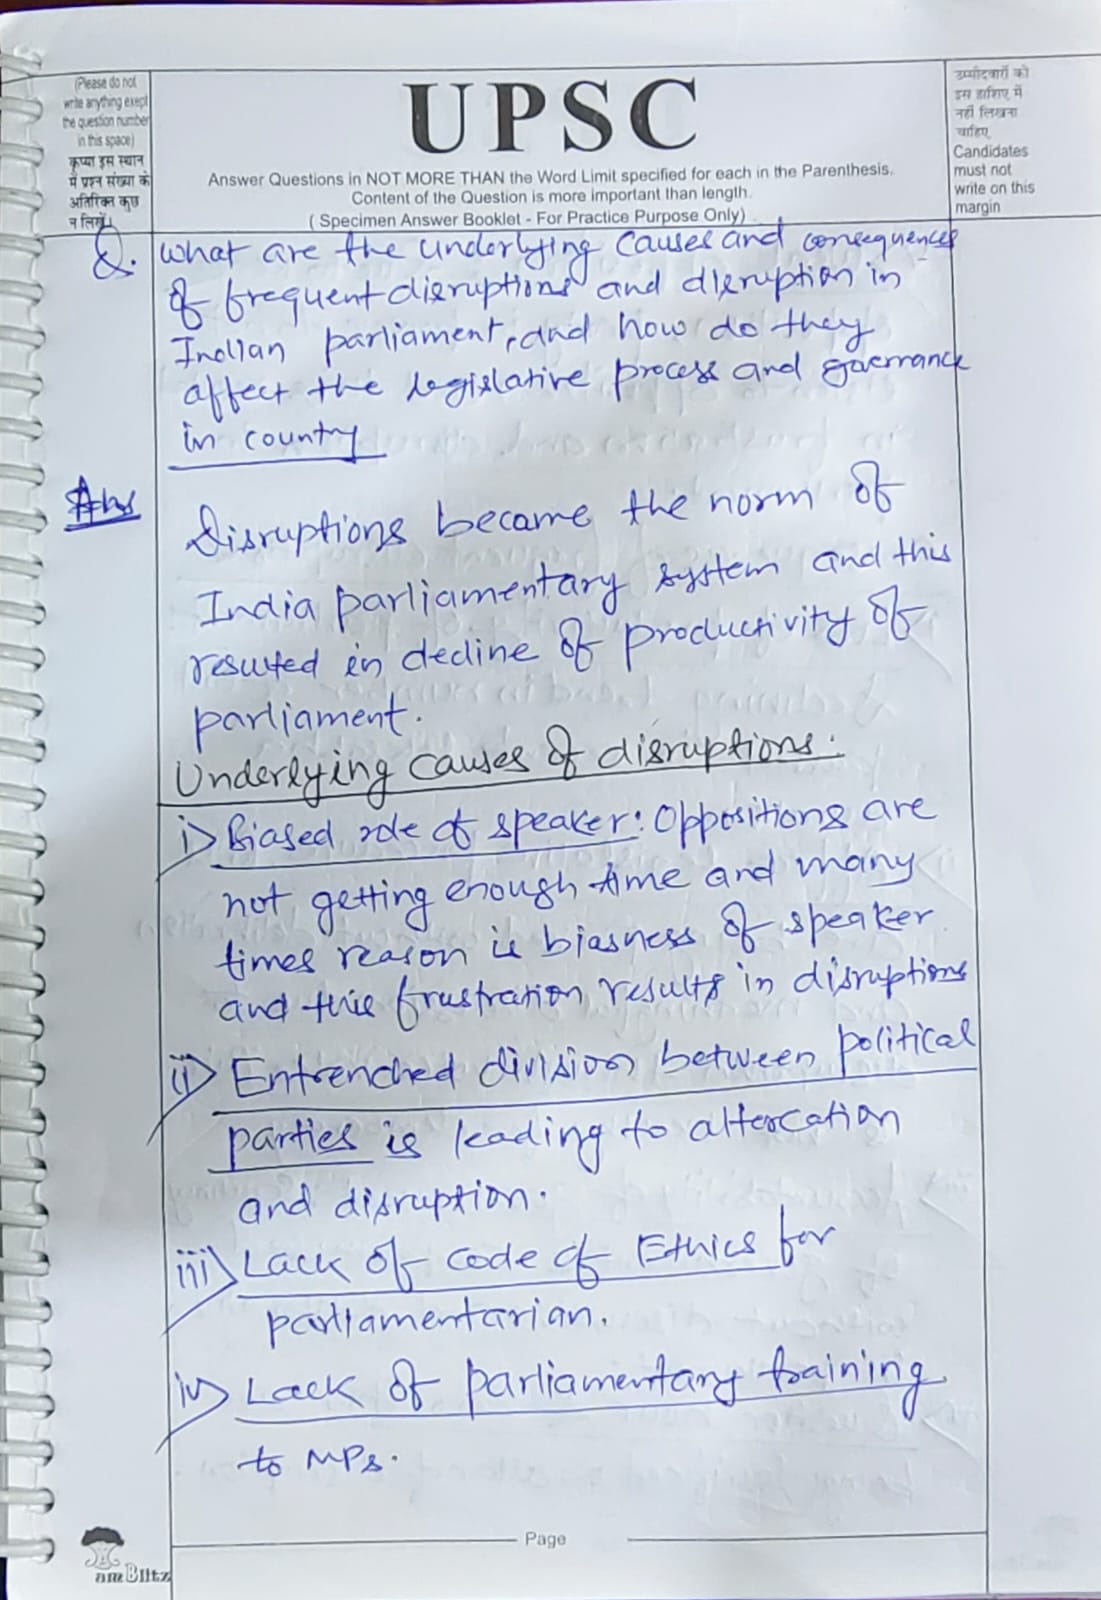 (Please do not
write anything exept
the question number
in this space)
कृप्या इस स्थान
में प्रश्न संख्या के
अतिरिक्त कुछ
न लिखें।
UPSC
Answer Questions in NOT MORE THAN the Word Limit specified for each in the Parenthesis.
Content of the Question is more important than length.
( Specimen Answer Booklet - For Practice Purpose Only)
उम्मीदवारों को
इस हाशिए में
नहीं लिखना
चाहिए
Candidates
must not
write on this
margin
Q. What are the underlying causes and consequences
of frequent disruptions and disruption in
Indian parliament, and how do they
affect the legislative process and governance
in country
Ans
Disruptions became the norm of
India parliamentary system and this
resulted in decline of productivity of
parliament.
Underlying causes of disruptions.
i) Biased role of speaker: Oppositions are
not getting enough time and many
times reason is biasness of speaker
and this frustration results in disruptions
ii) Entrenched division between political
parties is leading to altercation
and disruption.
iii) Lack of code of Ethics for
parliamentarian.
iv) Lack of parliamentary training
to MPs.
Page
amBlitz